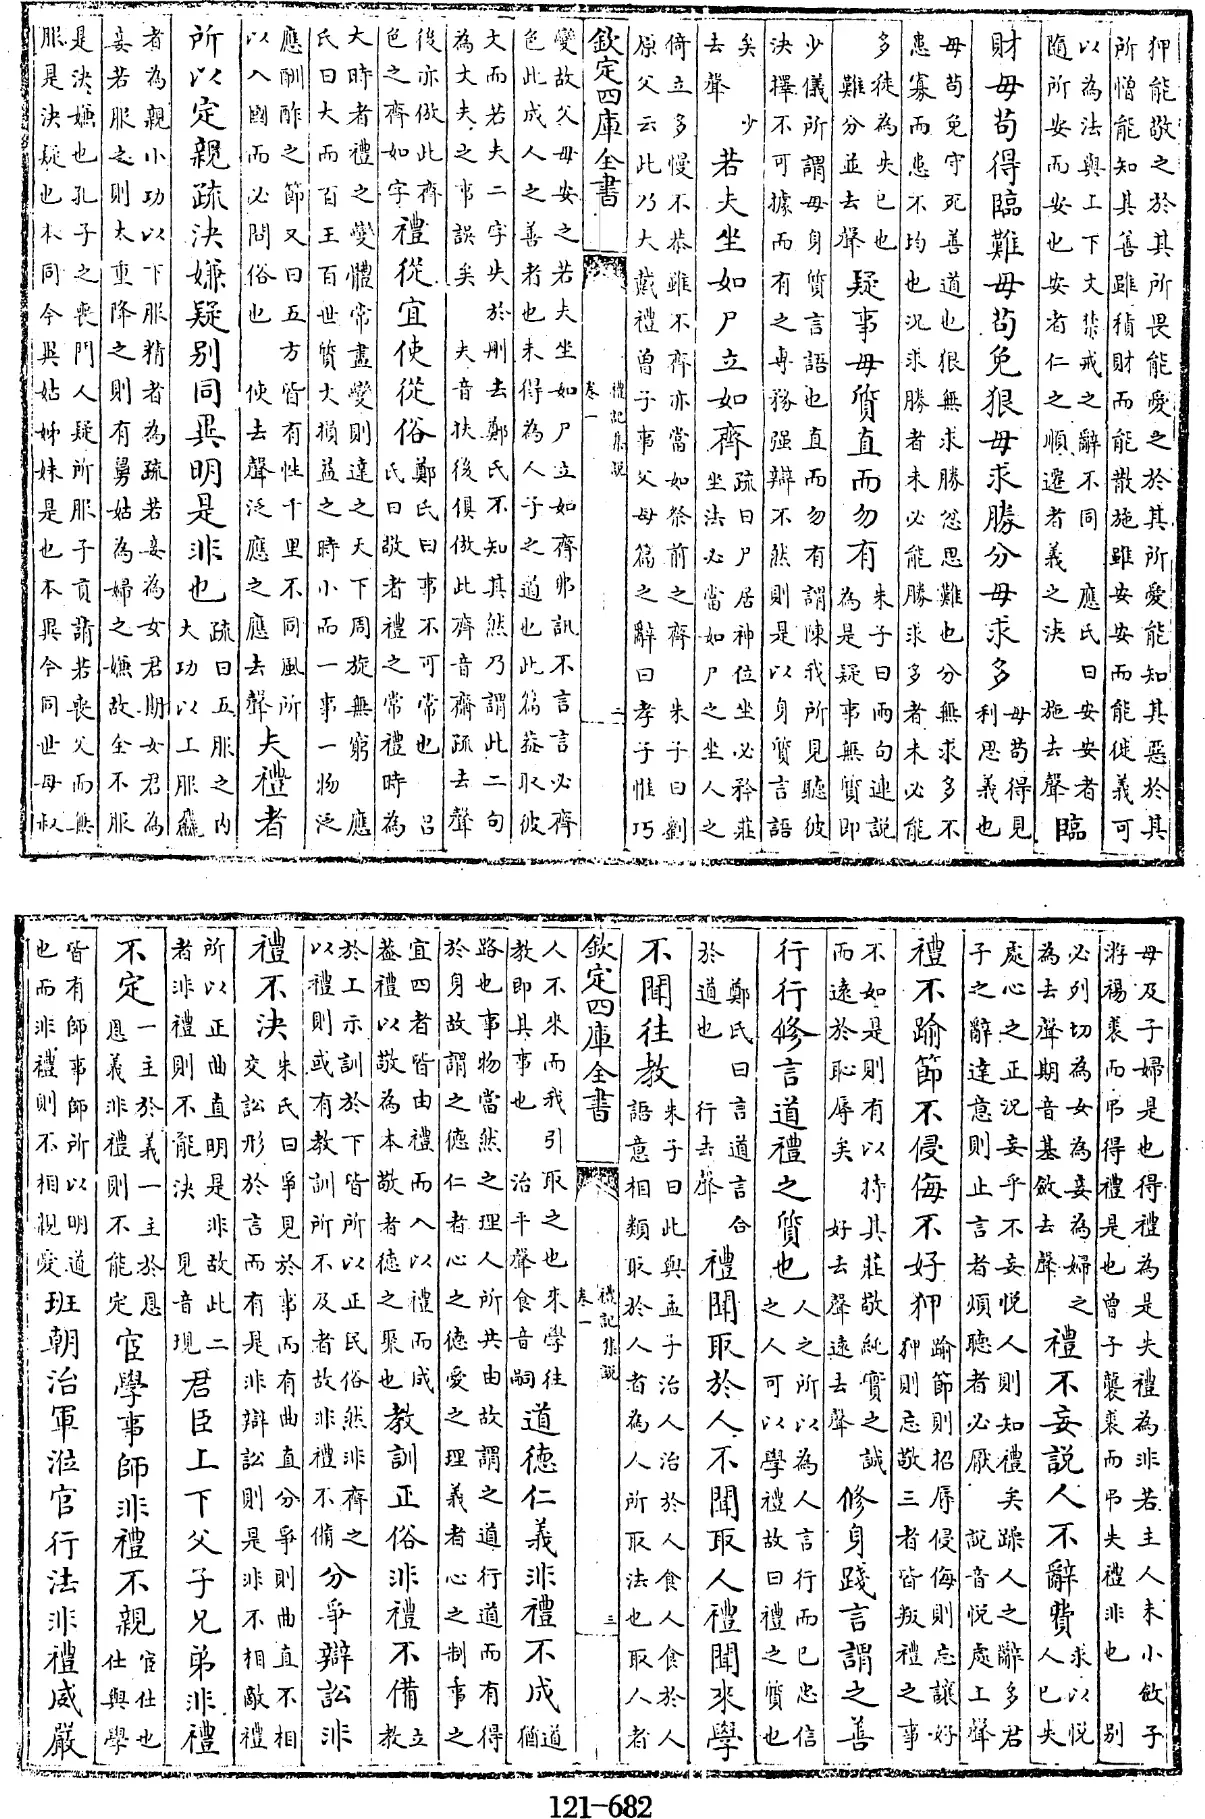 狎能敬之於其所畏能愛之於其所愛能知其惡於其
所憎能知其善雖積財而能散施雖安安而能徙義可
以為法與上下文禁戒之辭不同　應氏曰安安者
隨所安而安也安者仁之順遷者義之決　施去聲
臨
財毋苟得臨難毋苟免狠毋求勝分毋求多
毋苟得見
利思義也
毋苟免守死善道也狠無求勝忿思難也分無求多不
患寡而患不均也況求勝者未必能勝求多者未必能
多徒為失已也
難分並去聲
疑事毋質直而勿有
朱子曰兩句連說
為是疑事無質即
少儀所謂毋身質言語也直而勿有謂陳我所見聽彼
決擇不可據而有之專務强辯不然則是以身質言語
矣　少
去聲
若夫坐如尸立如齊
疏曰尸居神位坐必矜莊
坐法必當如尸之坐人之
倚立多慢不恭雖不齊亦當如祭前之齊　朱子曰劉
原父云此乃大戴禮曾子事父母篇之辭曰孝子惟巧
欽定四庫全書
禮記集說
卷一
二
變故父母安之若夫坐如尸立如齊弗訊不言言必齊
色此成人之善者也未得為人子之道也此篇蓋取彼
文而若夫二字失於刪去鄭氏不知其然乃謂此二句
為丈夫之事誤矣　夫音扶後俱倣此齊音齋疏去聲
後亦倣此齊
色之齊如字
禮從宜使從俗
鄭氏曰事不可常也　呂
氏曰敬者禮之常禮時為
大時者禮之變體常盡變則達之天下周旋無窮　應
氏曰大而百王百世質文損益之時小而一事一物泛
應酬酢之節又曰五方皆有性千里不同風所
以入國而必問俗也　使去聲泛應之應去聲
夫禮者
所以定親疏決嫌疑别同異明是非也
疏曰五服之内
大功以上服麤
者為親小功以下服精者為疏若妾為女君期女君為
妾若服之則太重降之則有舅姑為婦之嫌故全不服
是決嫌也孔子之喪門人疑所服子貢請若喪父而無
服是決疑也本同今異姑姊妹是也本異今同世母叔
母及子婦是也得禮為是失禮為非若主人未小斂子
游裼裘而弔得禮是也曾子襲裘而弔失禮非也　别
必列切為女為妾為婦之
為去聲期音基斂去聲
禮不妄說人不辭費
求以悅
人已失
處心之正況妄乎不妄悅人則知禮矣躁人之辭多君
子之辭達意則止言者煩聽者必厭　說音悅處上聲
禮不踰節不侵侮不好狎
踰節則招辱侵侮則忘讓好
狎則忘敬三者皆叛禮之事
不如是則有以持其莊敬純實之誠
而遠於恥辱矣　好去聲遠去聲
修身踐言謂之善
行行修言道禮之質也
人之所以為人言行而已忠信
之人可以學禮故曰禮之質也
鄭氏曰言道言合
於道也　行去聲
禮聞取於人不聞取人禮聞來學
不聞往教
朱子曰此與孟子治人治於人食人食於人
語意相類取於人者為人所取法也取人者
欽定四庫全書
禮記集說
卷一
三
人不來而我引取之也來學往
教即其事也　治平聲食音嗣
道德仁義非禮不成
道
猶
路也事物當然之理人所共由故謂之道行道而有得
於身故謂之德仁者心之德愛之理義者心之制事之
宜四者皆由禮而入以禮而成
蓋禮以敬為本敬者德之聚也
教訓正俗非禮不備
立
教
於上示訓於下皆所以正民俗然非齊之
以禮則或有教訓所不及者故非禮不備
分爭辯訟非
禮不決
朱氏曰爭見於事而有曲直分爭則曲直不相
交訟形於言而有是非辯訟則是非不相敵禮
所以正曲直明是非故此二
者非禮則不能決　見音現
君臣上下父子兄弟非禮
不定
一主於義一主於恩
恩義非禮則不能定
宦學事師非禮不親
宦仕也
仕與學
皆有師事師所以明道
也而非禮則不相親愛
班朝治軍涖官行法非禮威嚴
121-682